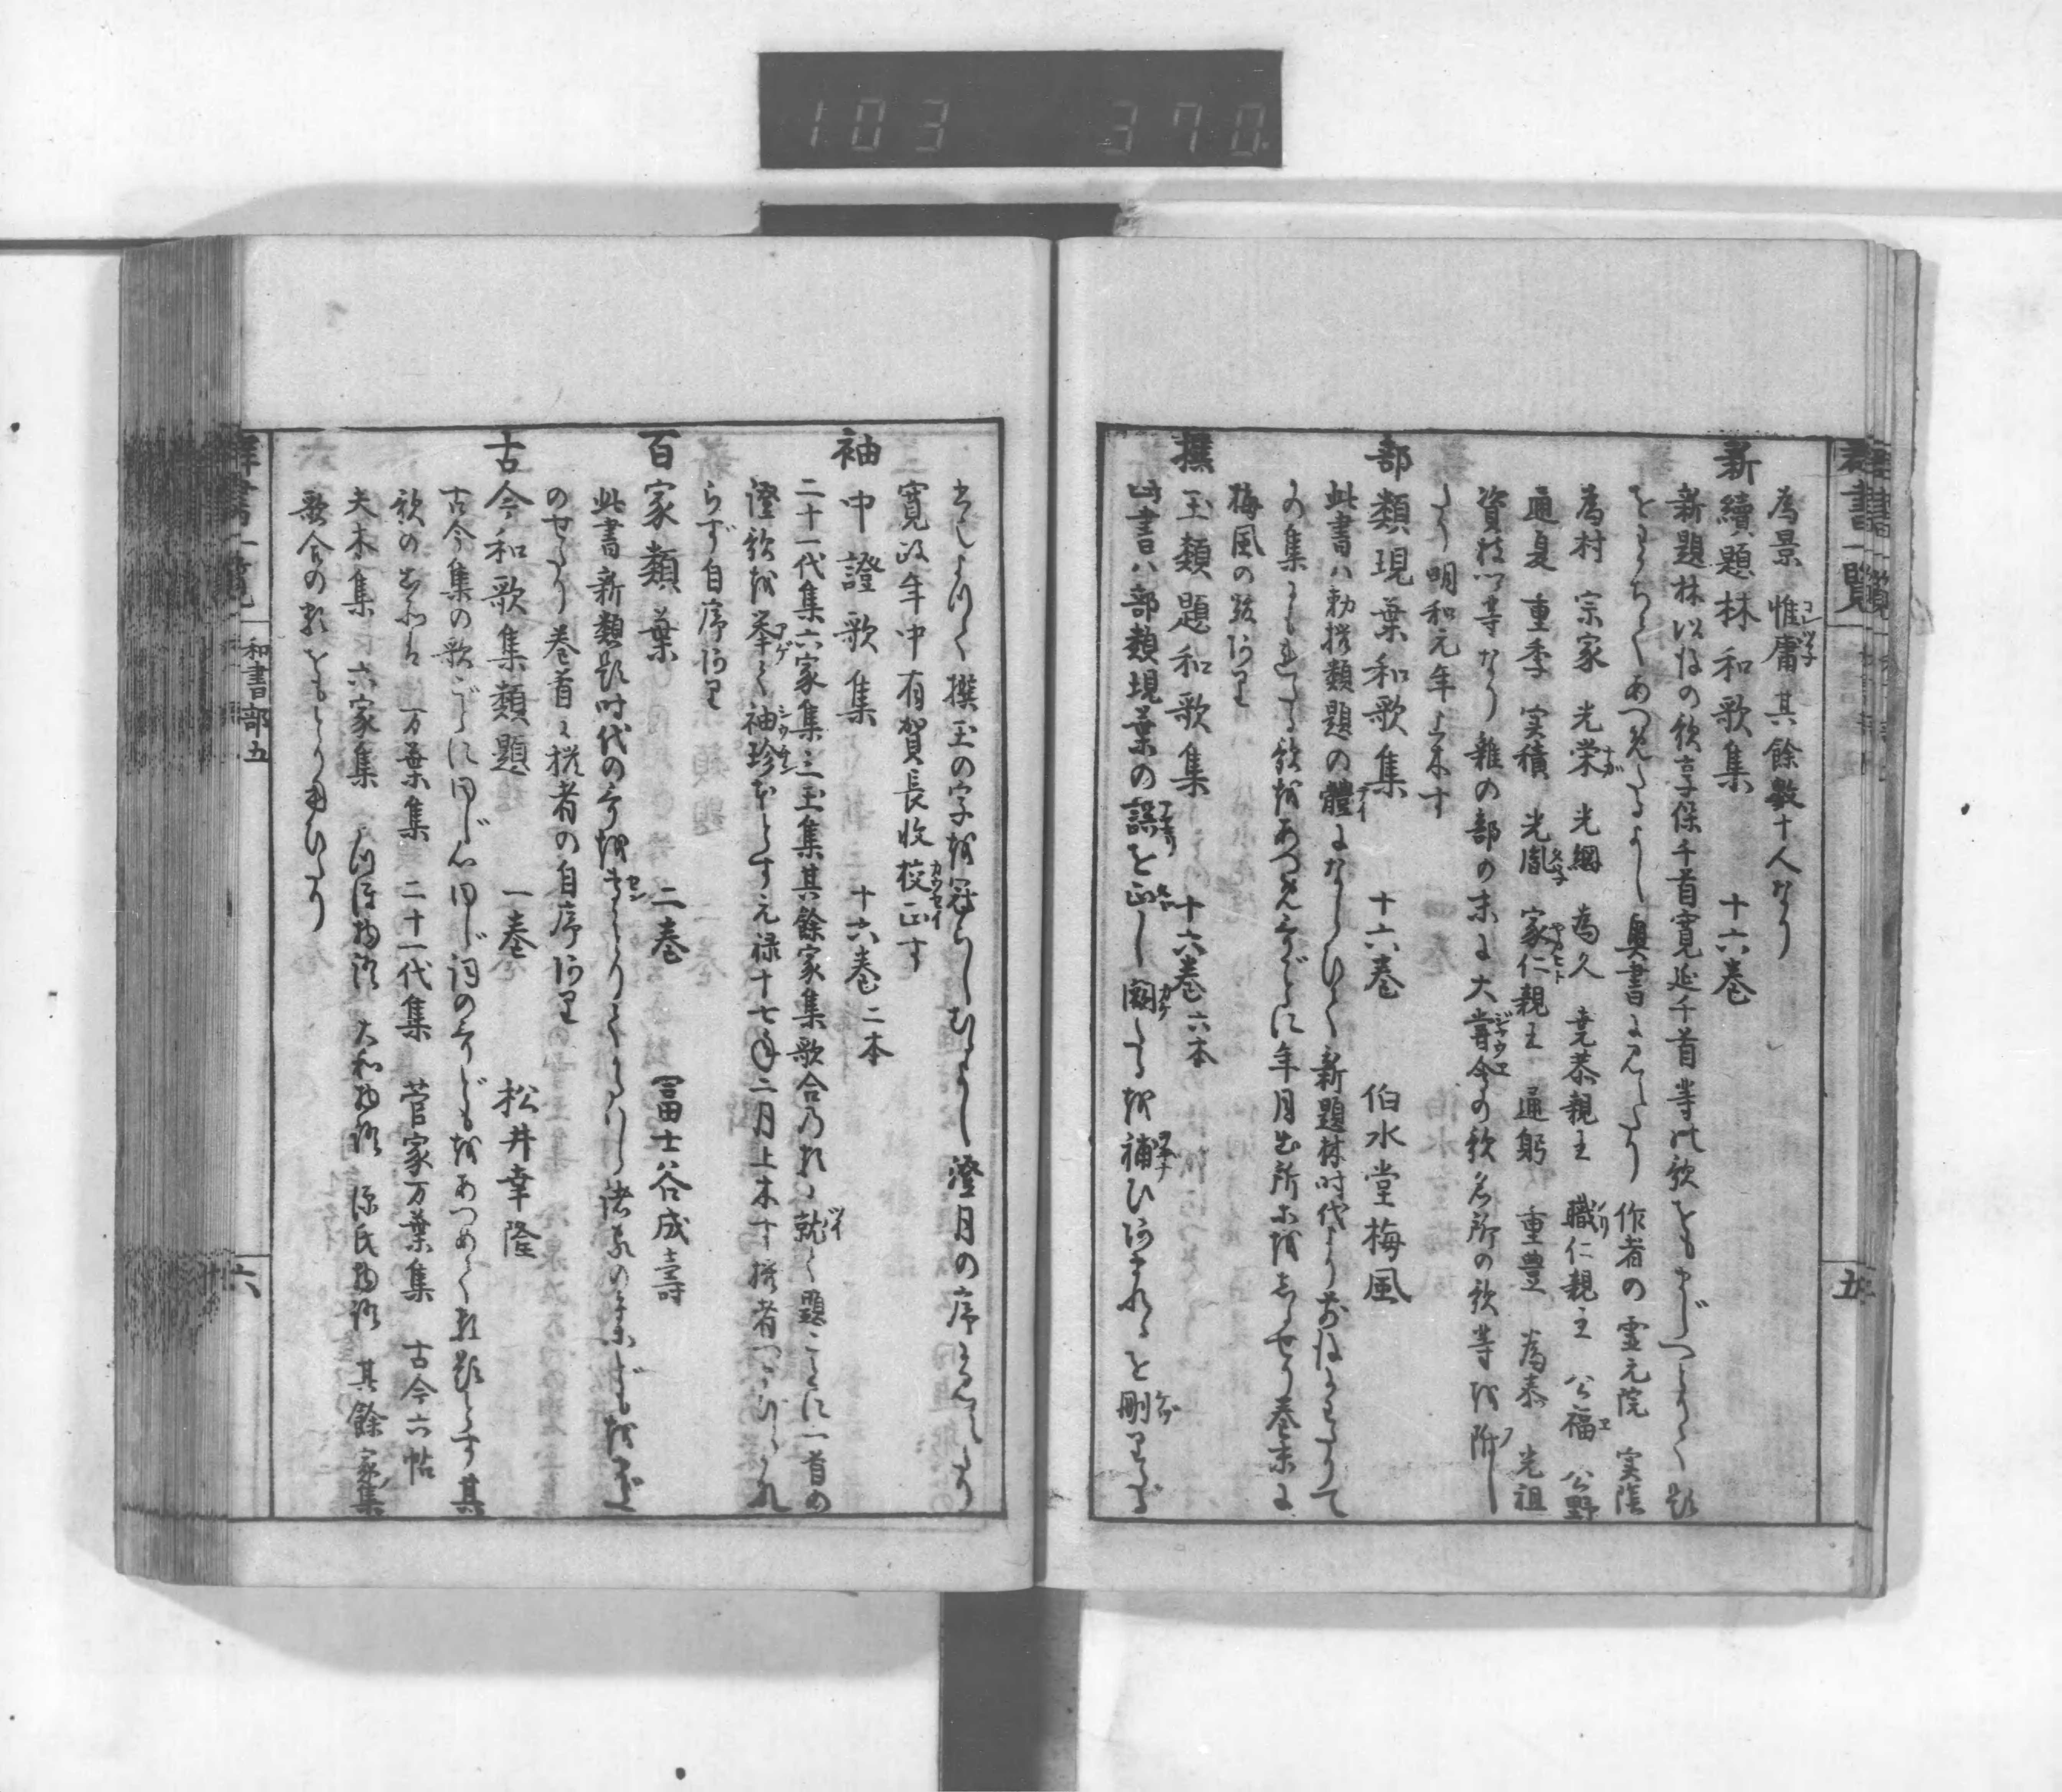 103 370
群書一覧
五
為景 惟庸 其餘數十人なり
新續題林和歌集 十六巻
新題林以後の歌享保千首寛延千首等の歌をもまじへつらねて題
をわかちてあつめたるよし奥書に見えたり 作者の霊元院 実陰
為村 宗家 光栄 光綱 為久 尭恭親王 職仁親王 公福 公野
通夏 重季 実積 光胤 家仁親王 通躬 重豊 為泰 光祖
資枝等なり 雑の部の末に大嘗会の歌名所の歌等を附し
たり 明和元年上木す
部類現葉和歌集 十六巻 伯水堂梅風
此書ハ勅撰類題の體にならひて新題林時代より
の集にもれたる歌をあつめ年月出所等をしるせり巻末に
梅風の跋あり
撰玉類題和歌集 十六巻 六本
此書ハ部類現葉の誤を正し闕たるを補ひあやまれるを刪
撰玉の字を冠らしむるよし 澄月の序に見えたり
寛政年中有賀長收校正す
袖中證歌集 十六巻 二本
二十一代集六家集三玉集其餘家集歌合の類に就て題ごとに一首の
證歌を挙て袖珍本とす元禄十七年二月上木す撰者つまびらかな
らず自序あり
百家類葉 二巻 冨士谷成壽
此書新類題時代の
のせたり 巻首に撰者の自序あり
古今和歌集類題 一巻 松井幸隆
古今集の歌ごとに同じ心同じ詞の歌どもをあつめて類題とす其
歌の 万葉集 二十一代集 菅家万葉集 古今六帖
夫木集 六家集 物語 大和物語 源氏物語 其餘家集
歌合の類をもとり用ひたり
群書一覧 和書部五
六